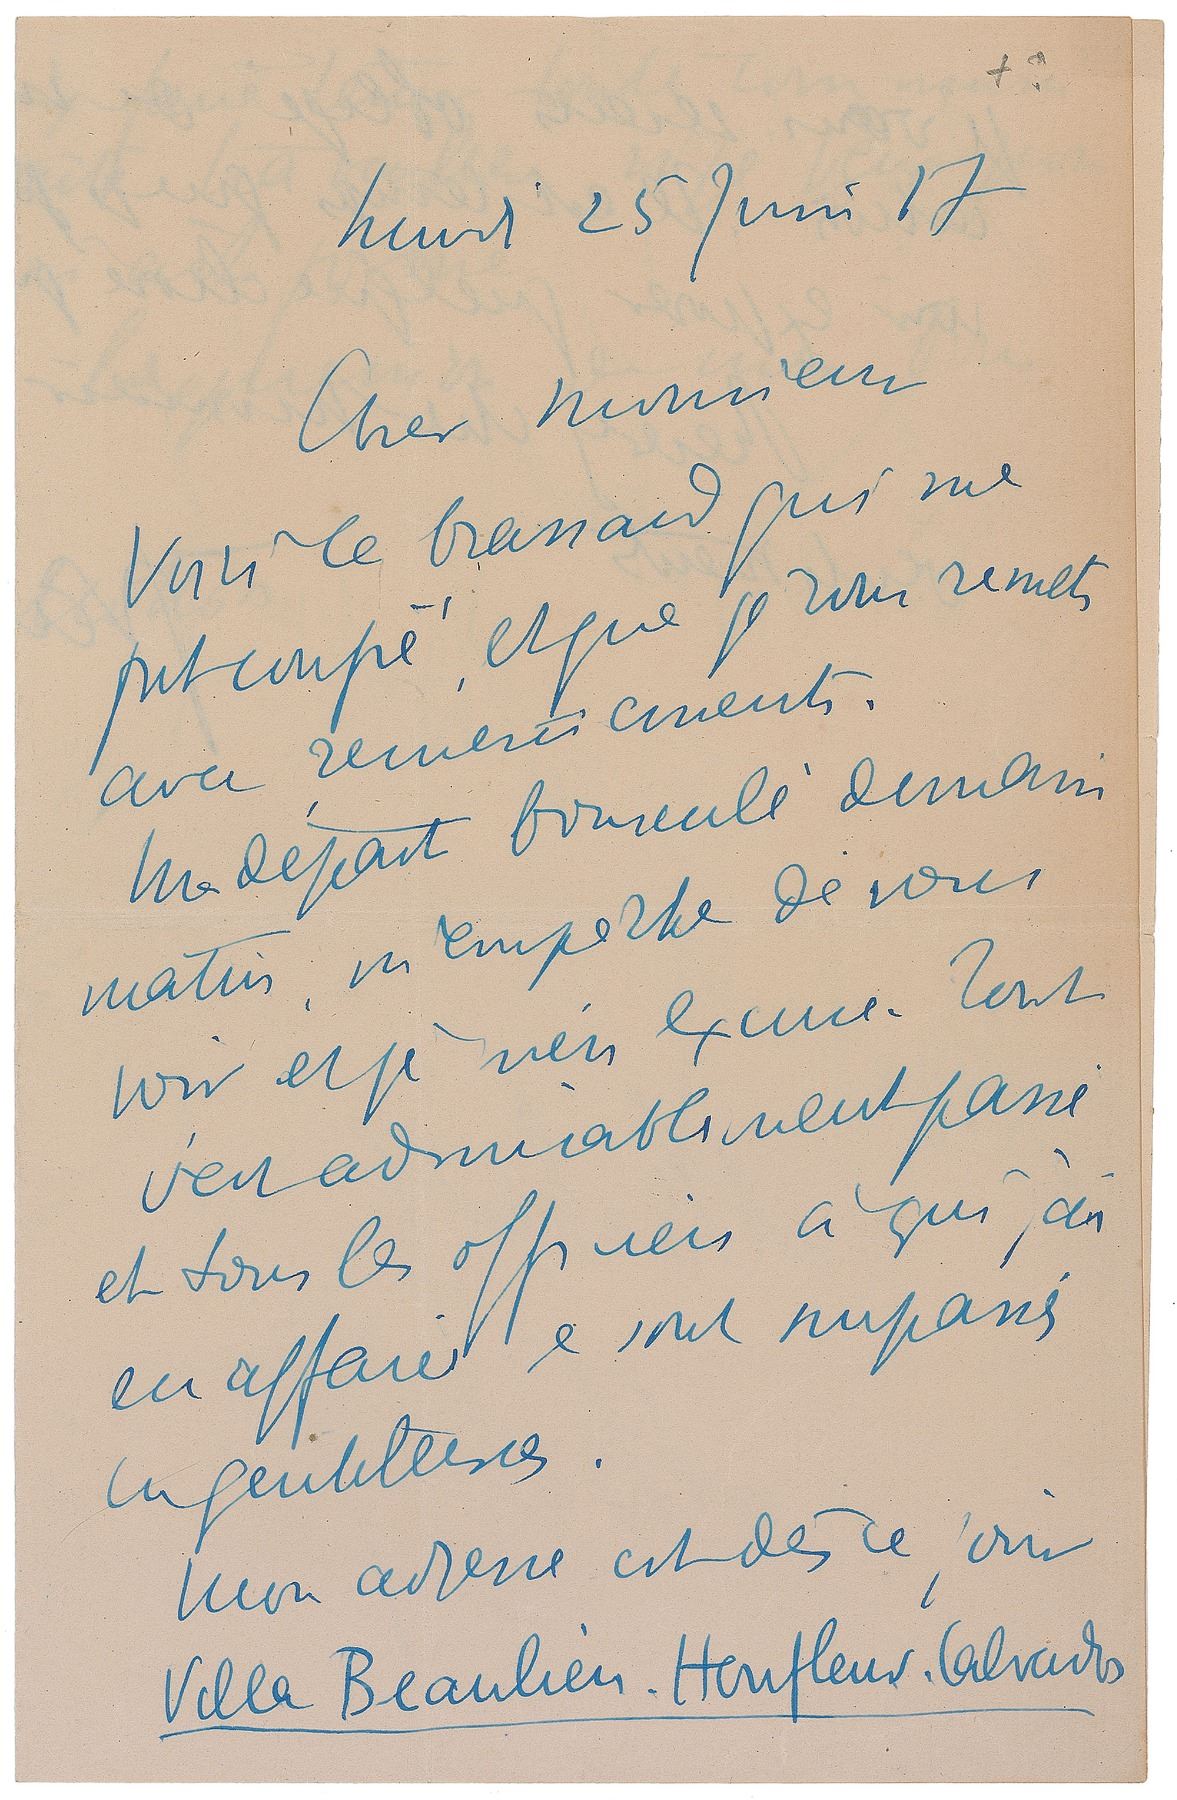 + ?
Lundi 25 Juin 17
Cher monsieur
Voici le brassard qui me
fut confié, et que je vous remets
avec remerciements.
Mon départ bousculé demain
matin, m'empêche de vous
voir et je m'en excuse. Tout
s'est admirablement passé
et tous les officiers à qui j'ai
eu affaire se sont surpassés
en gentillesses.
Mon adresse est dès ce jour
Villa Beaulieu. Honfleur. Calvados